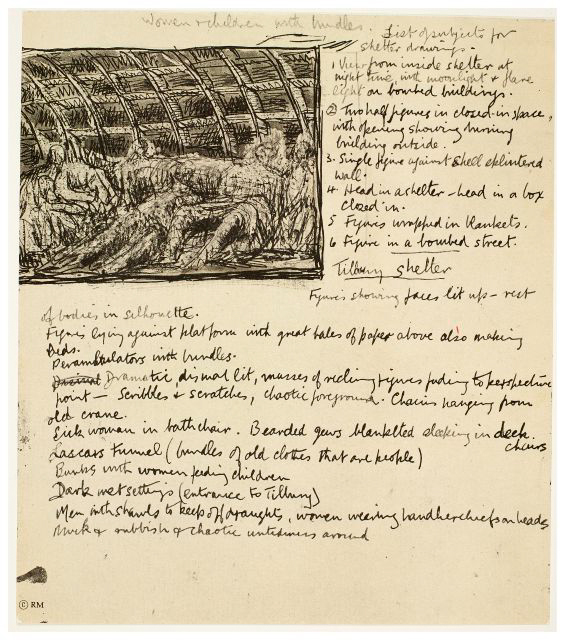 Women & children with bundles.
List of subjects for
shelter drawings.
1 View from inside shelter at
night time, with moonlight & flare
light on bombed buildings.
② Two half figures in closed-in space,
with opening showing burning
building outside.
3. Single figure against shell splintered
wall.
4. Head in a shelter - head in a box
closed in.
5 Figures wrapped in blankets.
6 Figure in a bombed street.
Tilbury shelter
Figures showing faces lit up - rest
of bodies in silhouette.
Figures lying against platform with great bales of paper above also making
beds.
Perambulators with bundles.
Dramatic, dismal lit, masses of reclining figures fading to perspective
point - Scribbles & scratches, chaotic foreground. Chains hanging from
old crane.
Sick woman in bathchair. Bearded jews blanketed sleeping in deck
chairs
Lascars Tunnel (bundles of old clothes that are people)
Bunks with women feeding children
Dark wet settings (entrance to Tilbury)
Men with shawls to keep off draughts, women wearing handkerchiefs on heads
Muck & rubbish & chaotic untidiness around
© RM